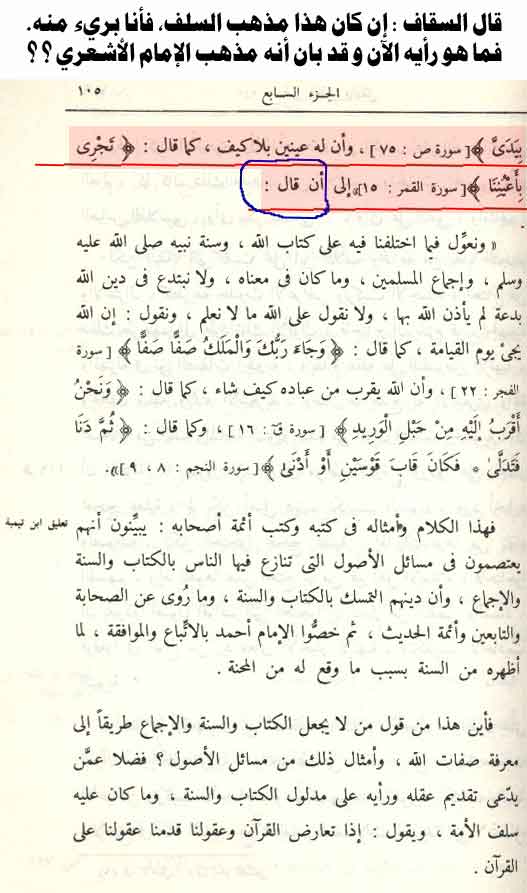 قال السقاف : إن كان هذا مذهب السلف، فأنا بريء منه.
فما هو رأيه الآن وقد بان أنه مذهب الإمام الأشعري ؟؟
الجزء السابع ١٠٥
بِيَدَىَّ ﴾ [ سورة ص : ٧٥ ] ، وأن له عينين بلا كيف ، كما قال : ﴿ تَجْرِى
بِأَعْيُنِنَا ﴾ [ سورة القمر : ١٥ ]» إلى أن قال :
« ونعوِّل فيما اختلفنا فيه على كتاب الله ، وسنة نبيه صلى الله عليه
وسلم ، وإجماع المسلمين ، وما كان فى معناه ، ولا نبتدع فى دين الله
بدعة لم يأذن الله بها ، ولا نقول على الله ما لا نعلم ، ونقول : إن الله
يجئ يوم القيامة ، كما قال : ﴿ وَجَاءَ رَبُّكَ وَالْمَلَكُ صَفًّا صَفًّا ﴾ [ سورة
الفجر : ٢٢ ] ، وأن الله يقرب من عباده كيف شاء ، كما قال : ﴿ وَنَحْنُ
أَقْرَبُ إِلَيْهِ مِنْ حَبْلِ الْوَرِيدِ ﴾ [ سورة قۤ : ١٦ ] ، وكما قال : ﴿ ثُمَّ دَنَا
فَتَدَلَّىٰ * فَكَانَ قَابَ قَوْسَيْنِ أَوْ أَدْنَىٰ ﴾ [ سورة النجم : ٨ ، ٩ ]» .
فهذا الكلام وأمثاله فى كتبه وكتب أئمة أصحابه : يبيّنون أنهم
تعليق ابن تيمية
يعتصمون فى مسائل الأصول التى تنازع فيها الناس بالكتاب والسنة
والإجماع ، وأن دينهم التمسك بالكتاب والسنة ، وما رُوى عن الصحابة
والتابعين وأئمة الحديث ، ثم خصُّوا الإمام أحمد بالاتِّباع والموافقة ، لما
أظهره من السنة بسبب ما وقع له من المحنة .
فأين هذا من قول من لا يجعل الكتاب والسنة والإجماع طريقاً إلى
معرفة صفات الله ، وأمثال ذلك من مسائل الأصول ؟ فضلا عمَّن
يدّعى تقديم عقله ورأيه على مدلول الكتاب والسنة ، وما كان عليه
سلف الأمة ، ويقول : إذا تعارض القرآن وعقولنا قدمنا عقولنا على